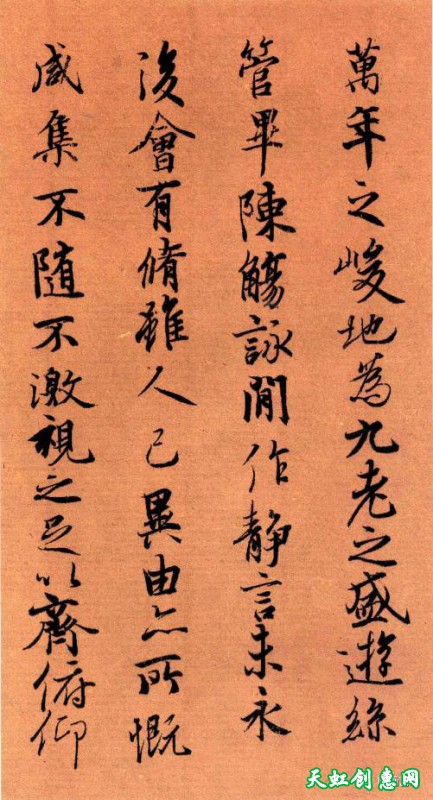 萬年之峻地為九老之盛遊絲
管畢陳觴詠間作靜言未永
後會有脩雖人已異由亦所慨
咸集不随不激視之足以齊俯仰
天虹创惠网